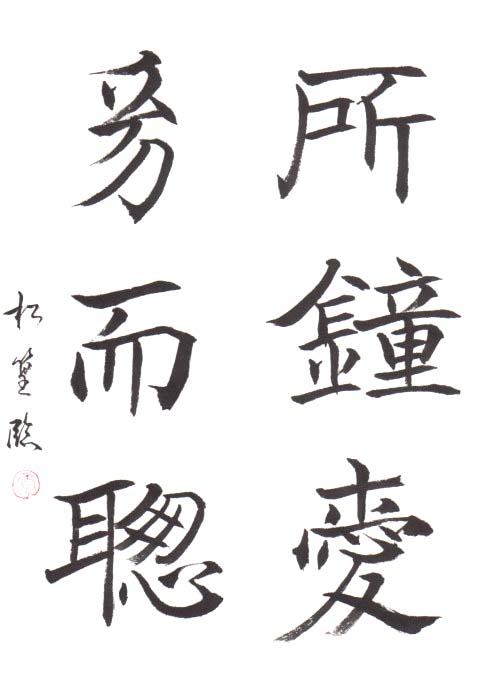 所鐘愛
㓜而聰
松篁臨